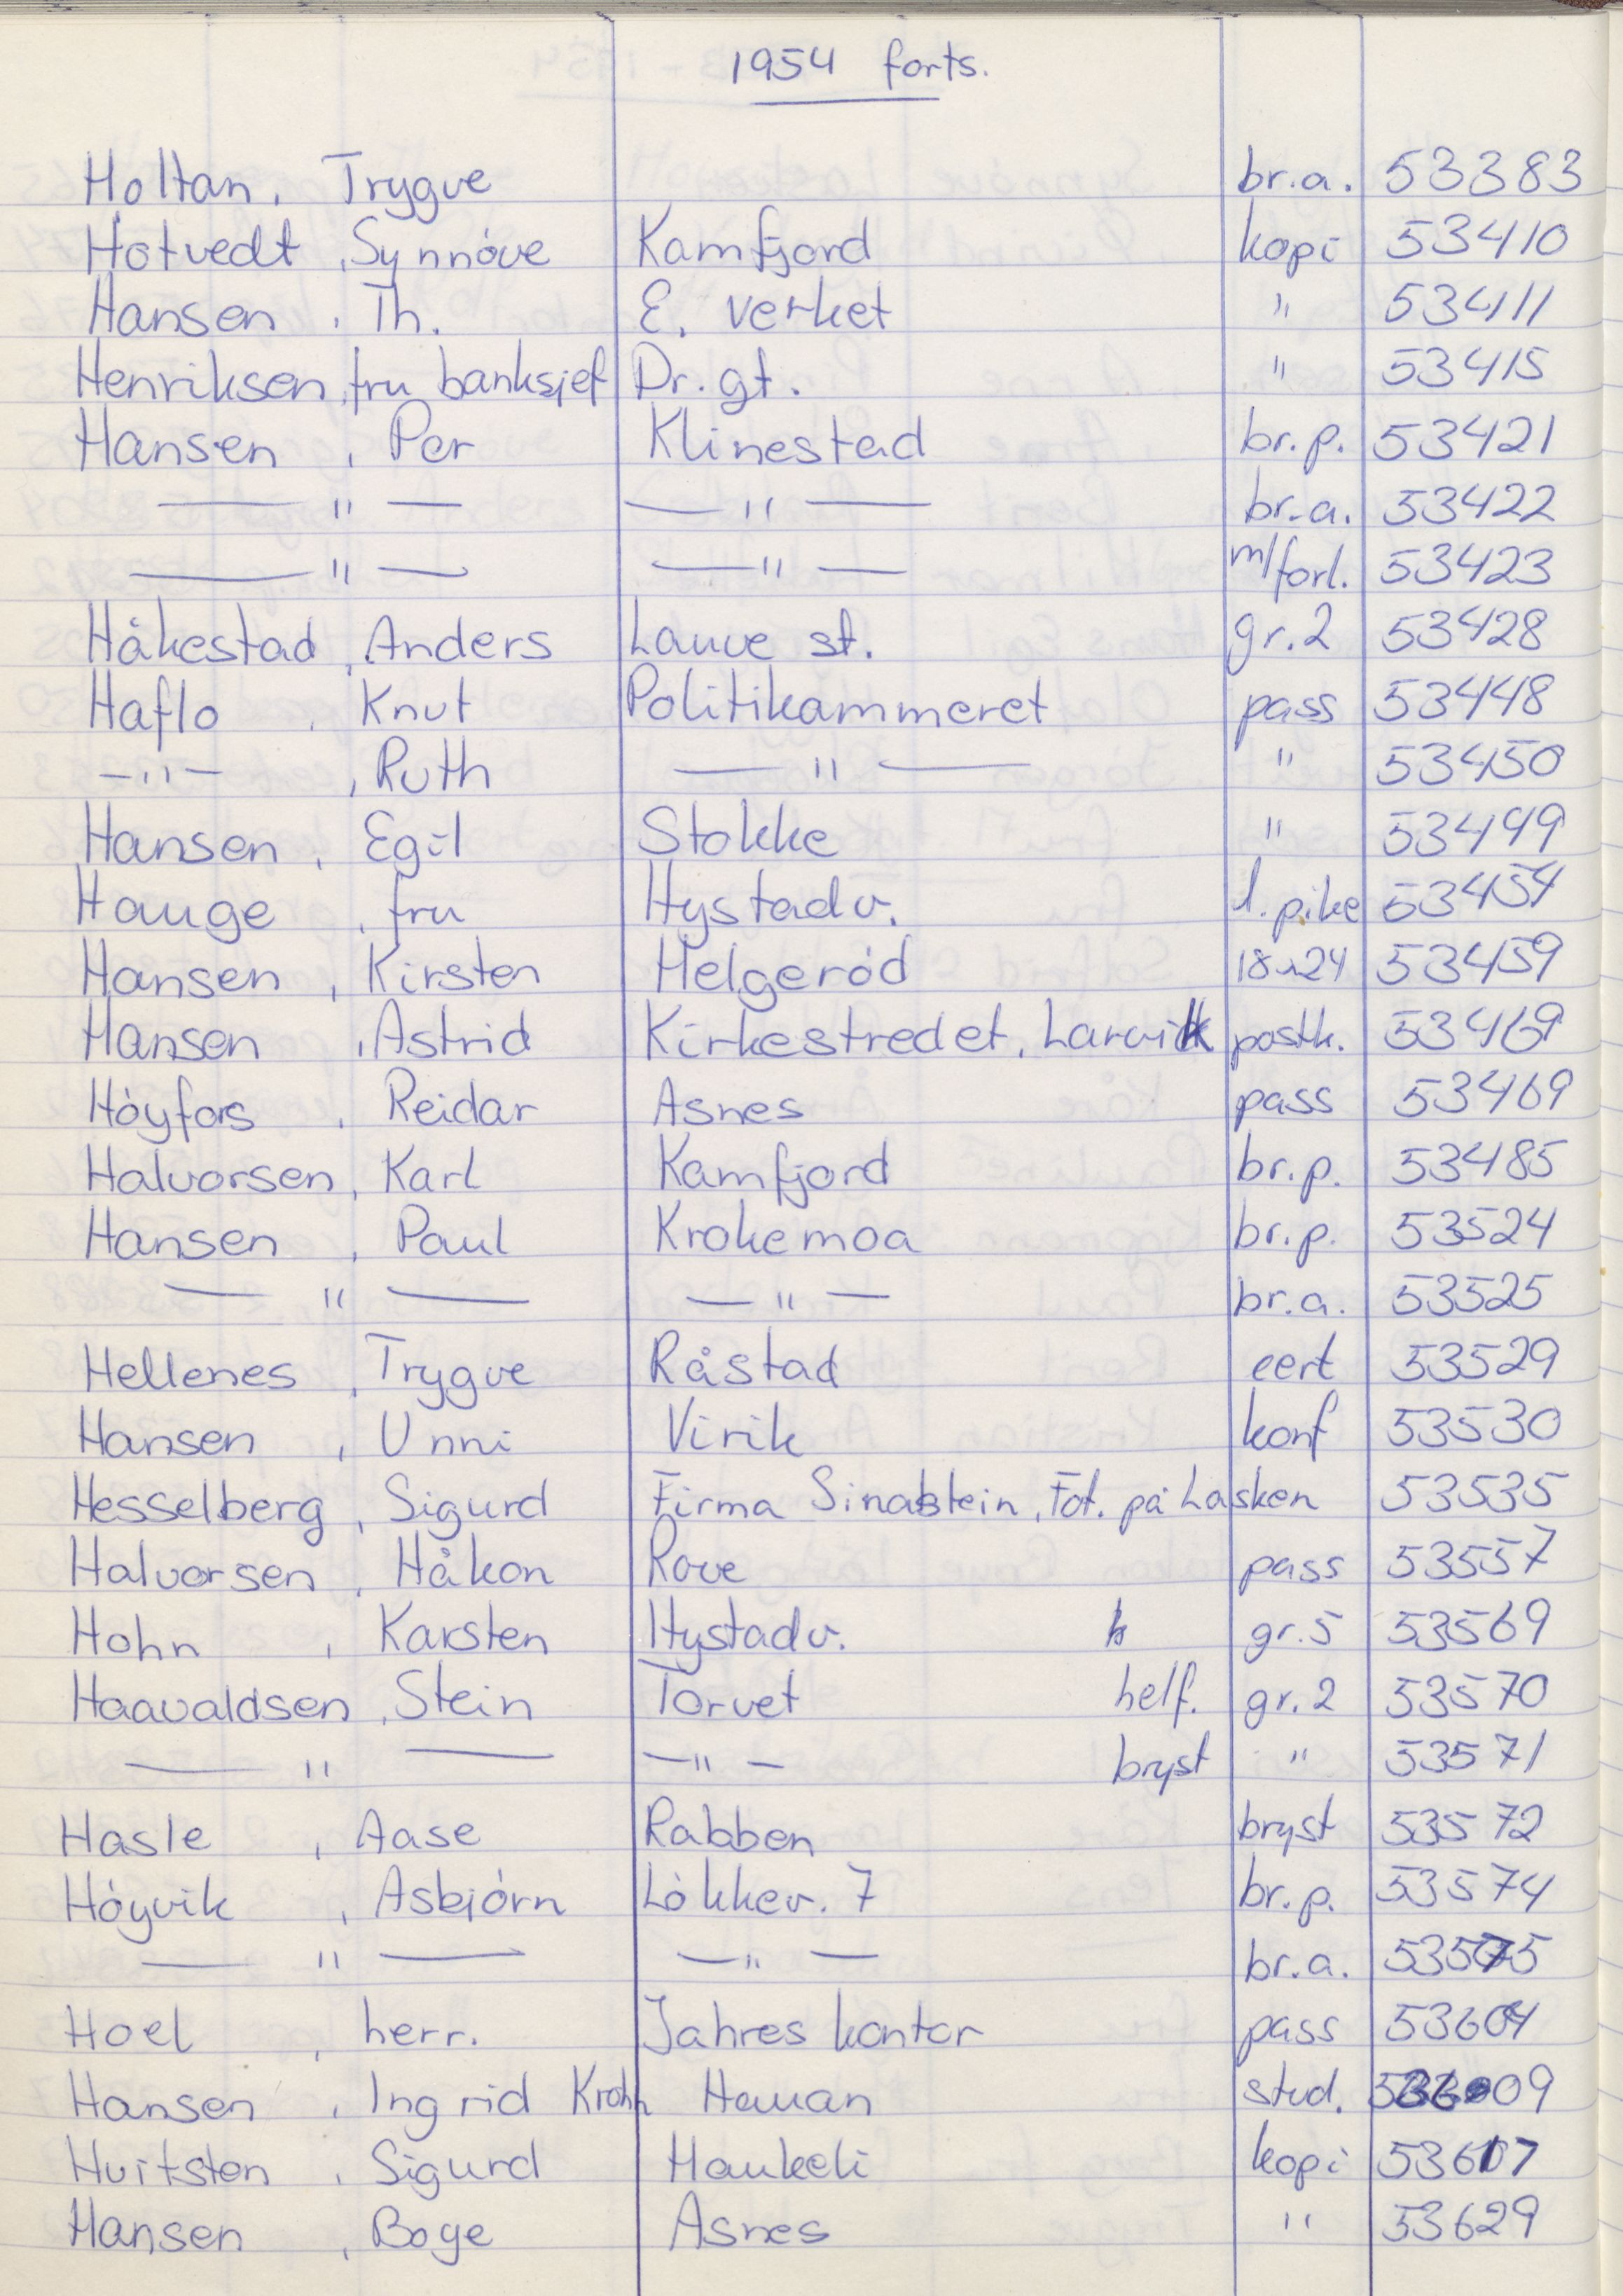 1954 forts.
Holtan, Trygve br.a. 53383
Hotvedt, Synnöve Kamfjord kopi 53410
Hansen, Th. E. verket " 53411
Henriksen, fru banksjef Dr. gt. " 53415
Hansen, Per Klinestad br.p. 53421
— " — — " — br.a. 53422
— " — — " — m/forl. 53423
Håkestad, Anders Lauve st. gr.2 53428
Haflo, Knut Politikammeret pass 53448
— " —, Ruth — " — " 53450
Hansen, Egil Stokke " 53449
Hauge, fru Hystadv. l. pike 53454
Hansen, Kirsten Helgeröd 18x24 53459
Hansen, Astrid Kirkestredet, Larvik postk. 53469
Höyfors, Reidar Asnes pass 53469
Halvorsen, Karl Kamfjord br.p. 53485
Hansen, Paul Krokemoa br.p. 53524
— " — — " — br.a. 53525
Hellenes, Trygve Råstad cert 53529
Hansen, Unni Virik konf 53530
Hesselberg, Sigurd Firma Sinastein, Fot. på Lasken 53535
Halvorsen, Håkon Rove pass 53557
Hohn, Karsten Hystadv. gr.5 53569
Haavaldsen, Stein Torvet helf. gr.2 53570
— " — — " — bryst " 53571
Hasle, Aase Rabben bryst 53572
Höyvik, Asbjörn Lökkev. 7 br.p. 53574
— " — — " — br.a. 53575
Hoel, herr. Jahres kontor pass 53604
Hansen, Ingrid Krohn Hauan stud. 53609
Hvitsten, Sigurd Haukeli kopi 53617
Hansen, Boye Asnes " 53629